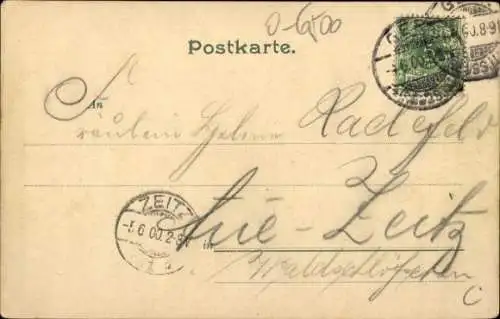 0-6,00
Postkarte.
An
Fräulein Helene Radefeld
Aue-Zeitz
in
Waldschlösschen
ZEITZ
-5.6.00.2-3
C